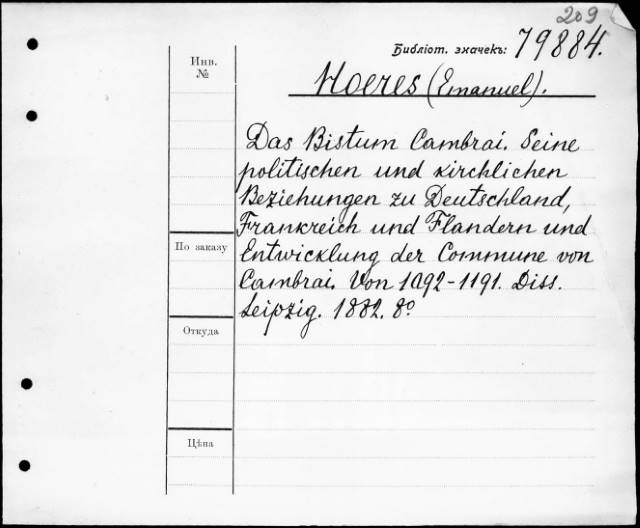 209
Библіот. значекъ: 79884.
Инв.
№
Hoeres (Emanuel).
Das Bistum Cambrai. Seine
politischen und kirchlichen
Beziehungen zu Deutschland,
Frankreich und Flandern und
Entwicklung der Commune von
Cambrai. Von 1092-1191. Diss.
Leipzig. 1882. 8º
По заказу
Откуда
Цѣна